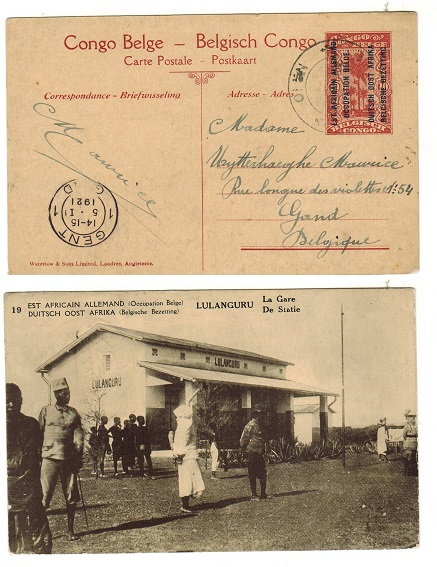 Congo Belge – Belgisch Congo
Carte Postale - Postkaart
Correspondance - Briefwisseling
Adresse - Adres
EST AFRICAIN ALLEMAND
OCCUPATION BELGE
DUITSCH OOST AFRIKA
BELGISCHE BEZETTING
BELGISCH
CONGO
Maurice
Madame
Uytterhaeghe Maurice
Rue longue des violettes 54
Gand
Belgique
GENT
1 5 · I 1
1921
14-15
Waterlow & Sons Limited, Londres, Angleterre.
19 EST AFRICAIN ALLEMAND (Occupation Belge) LULANGURU La Gare
DUITSCH OOST AFRIKA (Belgische Bezetting) De Statie
LULANGURU
LULANGURU